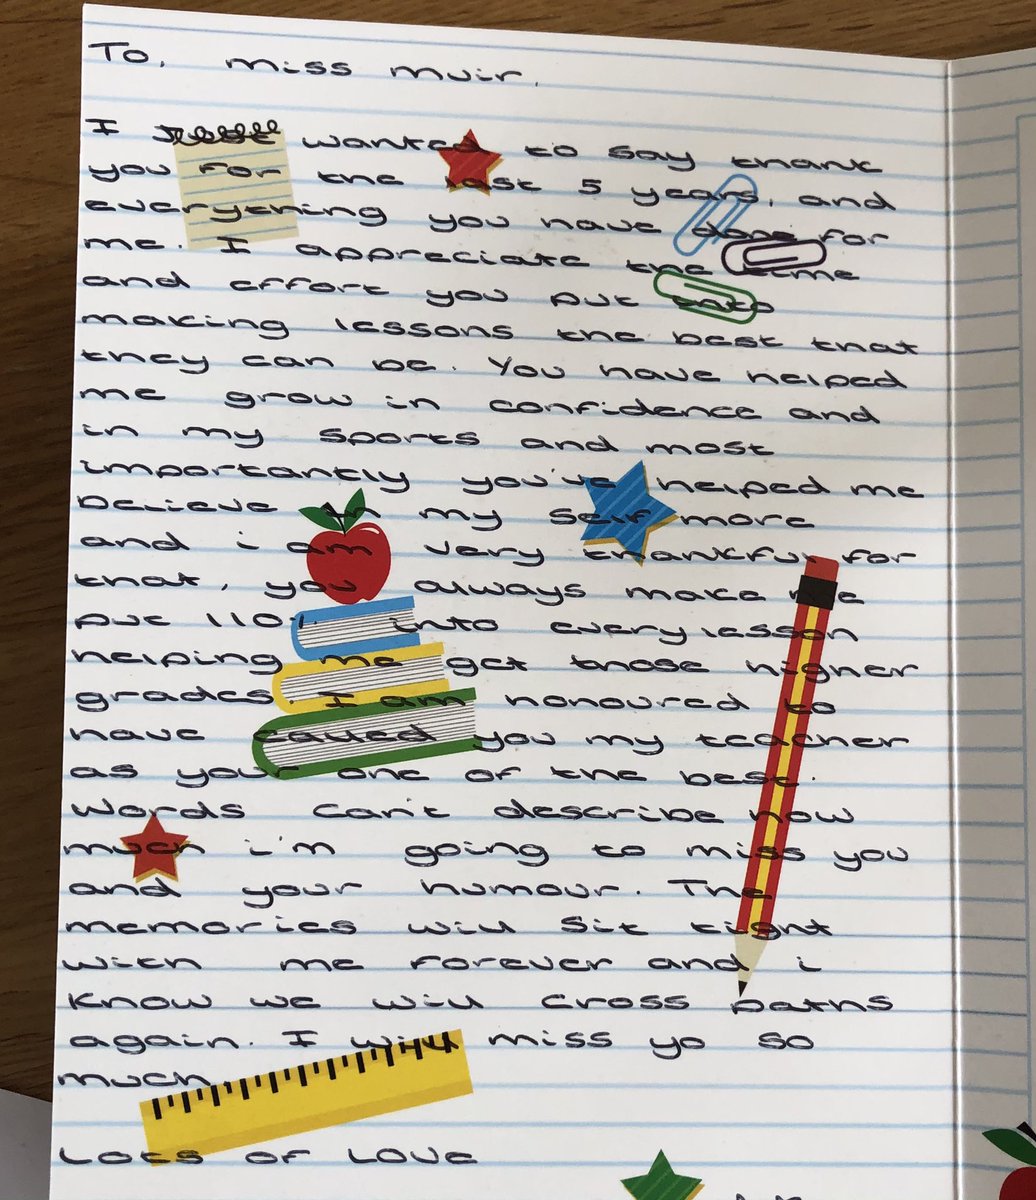 To, miss muir,
I wanted to say thank
you for the last 5 years, and
everything you have done for
me. I appreciate the time
and effort you put into
making lessons the best that
they can be. You have helped
me grow in confidence and
in my sports and most
importantly you've helped me
believe in my self more
and i am very thankful for
that, you always make me
put 110% into every lesson
helping me get those higher
grades. I am honoured to
have called you my teacher
as your one of the best.
words can't describe how
much i'm going to miss you
and your humour. The
memories will sit tight
with me forever and i
know we will cross paths
again. I will miss yo so
much
Lots of Love